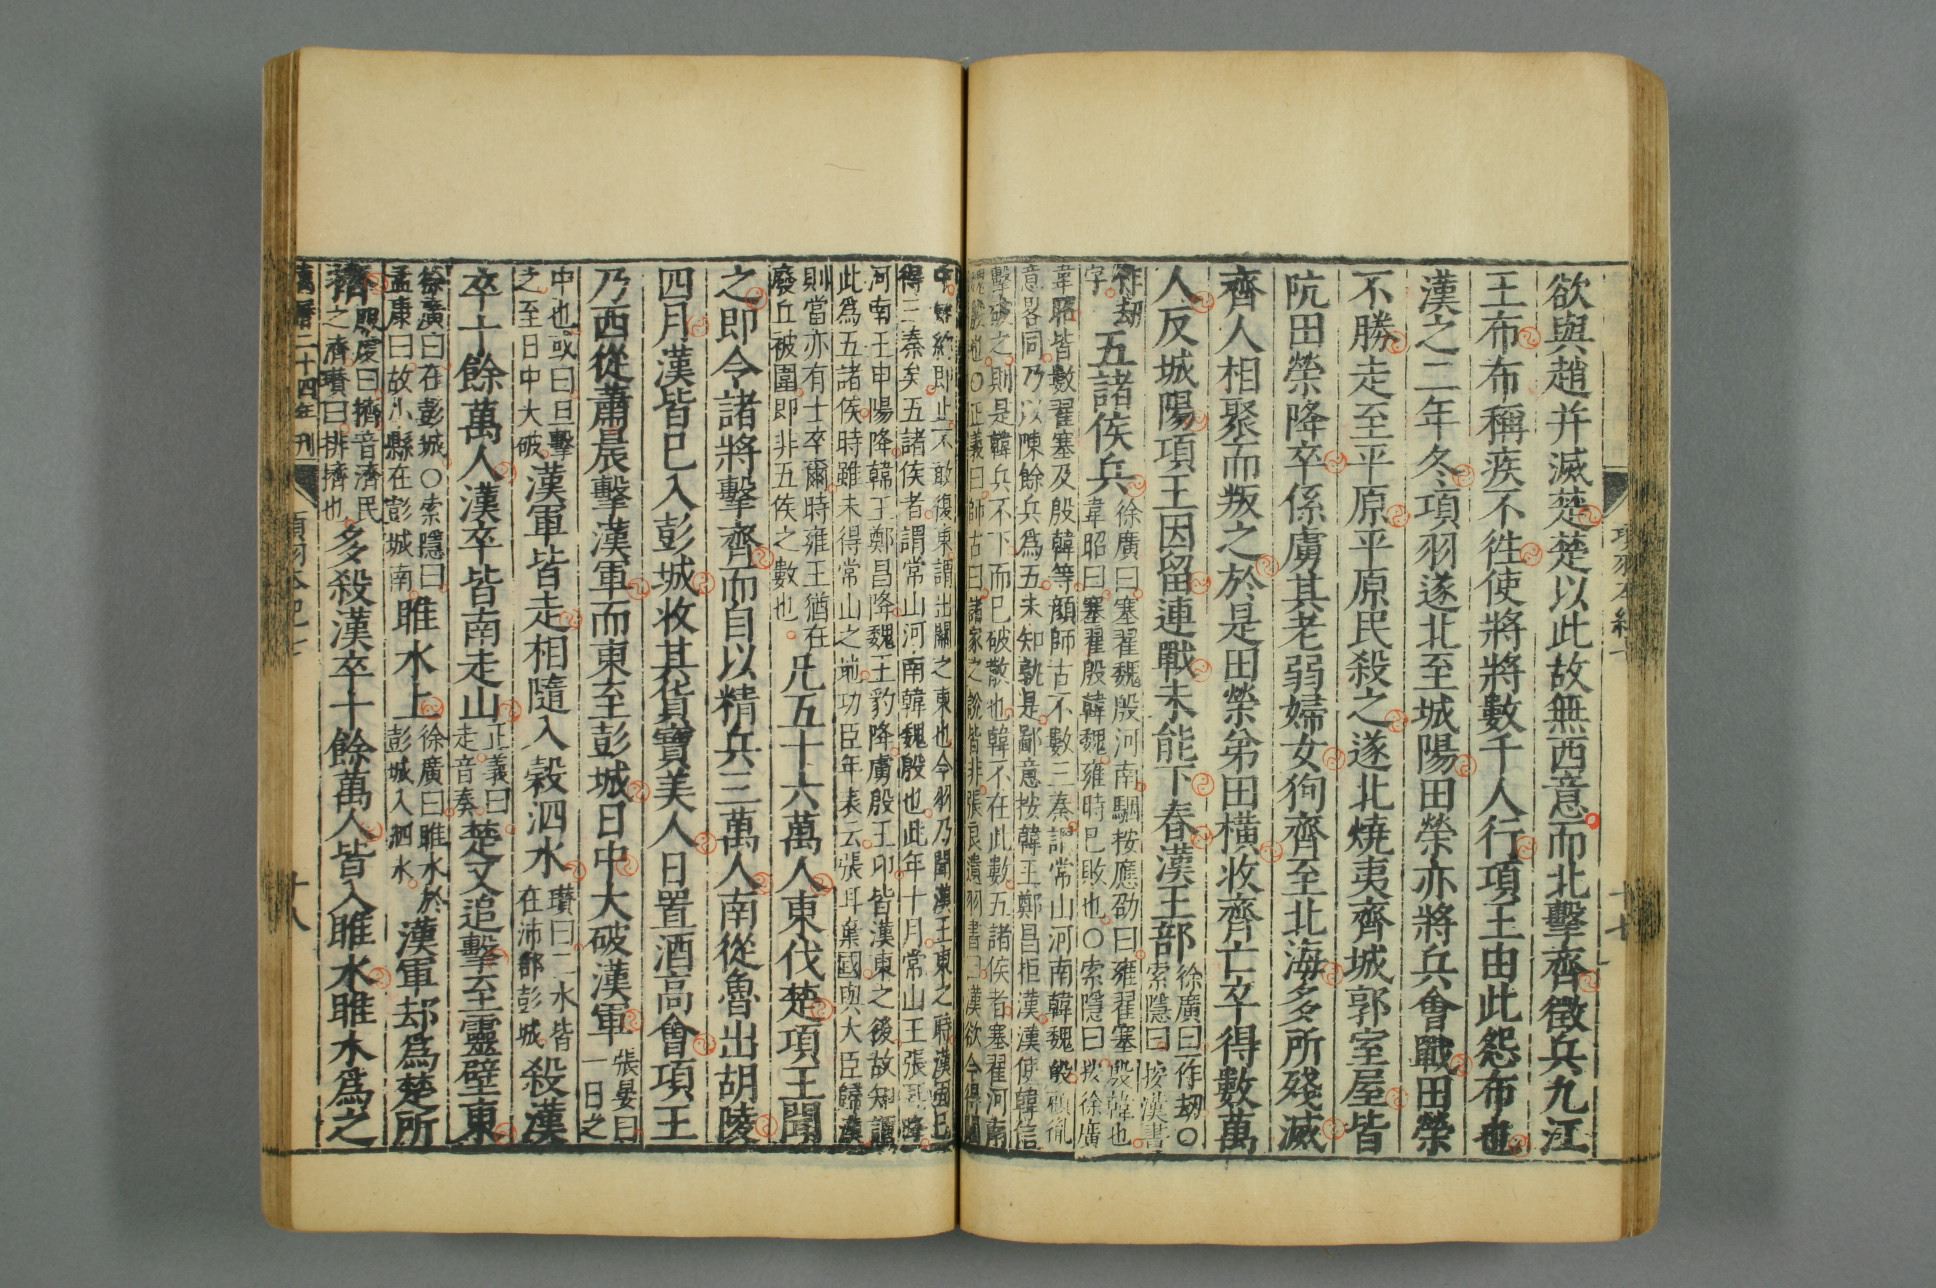 欲與趙并滅楚楚以此故無西意而北擊齊徵兵九江
王布布稱疾不徃使將將數千人行項王由此怨布也
漢之二年冬項羽遂北至城陽田榮亦將兵會戰田榮
不勝走至平原平原民殺之遂北燒夷齊城郭室屋皆
阬田榮降卒係虜其老弱婦女狥齊至北海多所殘滅
齊人相聚而叛之於是田榮弟田橫收齊亡卒得數萬
人反城陽項王因留連戰未能下春漢王部徐廣曰一作劫○
索隱曰按漢書
作劫
字五諸侯兵徐廣曰塞翟魏殷河南駰按應劭曰雍翟塞殷韓也
韋昭曰塞翟殷韓魏雍時已敗也○索隱曰按徐廣
韋昭皆數翟塞及殷韓等顏師古不數三秦謂常山河南韓魏殷顧胤
意畧同乃以陳餘兵爲五未知孰是鄙意按韓王鄭昌拒漢漢使韓信
擊破之則是韓兵不下而已破散也韓不在此數五諸侯者塞翟河南
魏殷也○正義曰師古曰諸家之說皆非張良遺羽書曰漢欲令得關
中如約即止不敢復東謂出關之東也今羽乃聞漢王東之時漢固已
得三秦矣五諸侯者謂常山河南韓魏殷也此年十月常山王張耳降
河南王申陽降韓王鄭昌降魏王豹降虜殷王卬皆漢東之後故知謂
此爲五諸侯時雖未得常山之地功臣年表云張耳棄國與大臣歸漢
則當亦有士卒爾時雍王猶在
廢丘被圍即非五侯之數也凡五十六萬人東伐楚項王聞
之即令諸將擊齊而自以精兵三萬人南從魯出胡陵
四月漢皆已入彭城收其貨寶美人日置酒高會項王
乃西從蕭晨擊漢軍而東至彭城日中大破漢軍張晏曰
一日之
中也或曰旦擊
之至日中大破漢軍皆走相隨入穀泗水瓚曰二水皆
在沛郡彭城殺漢
卒十餘萬人漢卒皆南走山正義曰
走音奏楚又追擊至靈壁東
徐廣曰在彭城○索隱曰
孟康曰故小縣在彭城南睢水上徐廣曰睢水於
彭城入泗水漢軍却爲楚所
擠服虔曰擠音濟民
之濟瓚曰排擠也多殺漢卒十餘萬人皆入睢水睢水爲之
項羽本紀七
十七
萬曆二十四年刊
項羽本紀七
十八